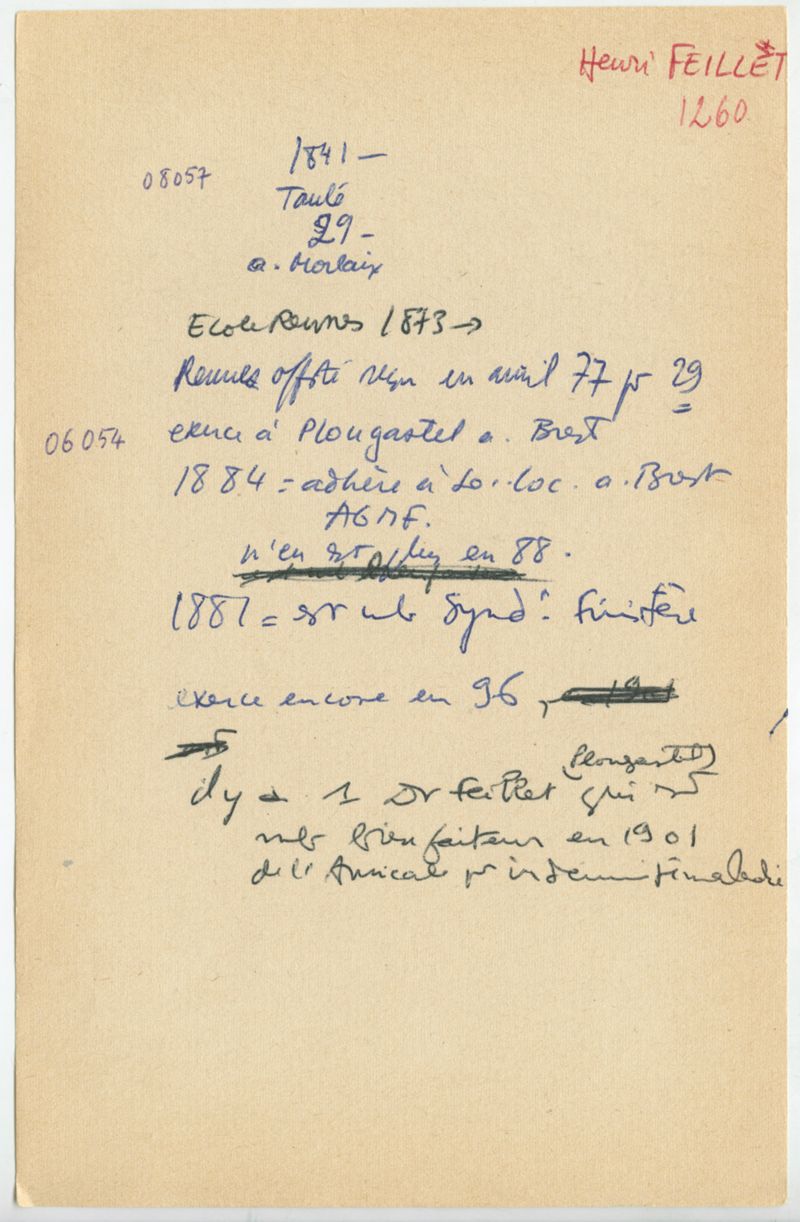 Henri FEILLET
1260
1841 –
08057
Taulé
29 –
a. Morlaix
Ecole Rennes 1873 →
Rennes offsté reçu en avril 77 pr 29
06054 exerce à Plougastel a. Brest
1884 = adhère à So. loc. a. Brest
AGMF.
n'en est plus en 88.
1887 = est mb Synd. Finistère
exerce encore en 96,
(Plougastel)
il y a 1 Dr Feillet qui est
mb bienfaiteur en 1901
de l'Amicale pr indemnité maladie